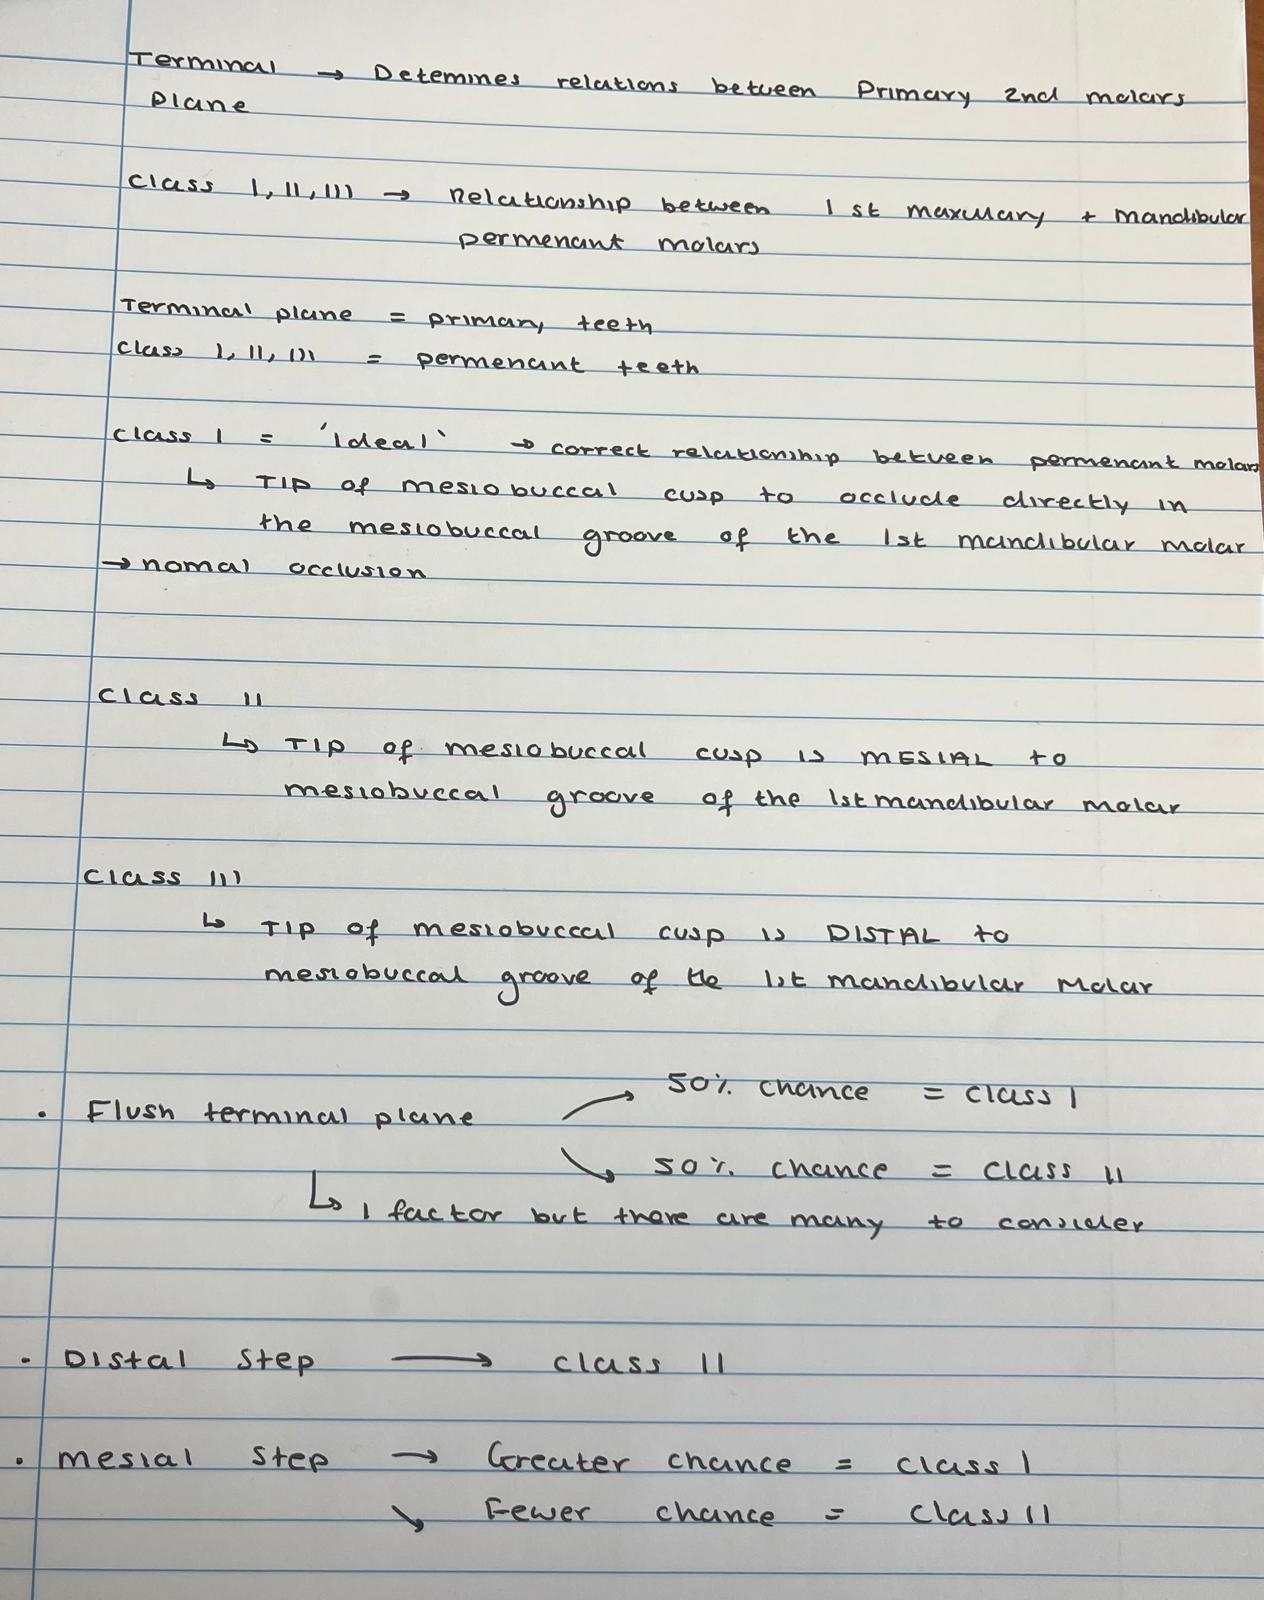 Terminal → Detemines relations between Primary 2nd molars
Plane
Class I, II, III → Relationship between 1st maxillary + Mandibular
permenant molars
Terminal plane = primary teeth
Class I, II, III = permenant teeth
Class I = 'Ideal' → correct relationship between permenant molars
↳ Tip of mesiobuccal cusp to occlude directly in
the mesiobuccal groove of the 1st mandibular molar
→ nomal occlusion
Class II
↳ Tip of mesiobuccal cusp is MESIAL to
mesiobuccal groove of the 1st mandibular molar
Class III
↳ Tip of mesiobuccal cusp is DISTAL to
mesiobuccal groove of the 1st mandibular Molar
→ 50% chance = Class I
• Flush terminal plane
→ 50% chance = Class II
↳ 1 factor but there are many to consider
• Distal Step → Class II
• mesial Step → Greater chance = Class I
↘ Fewer chance = Class II